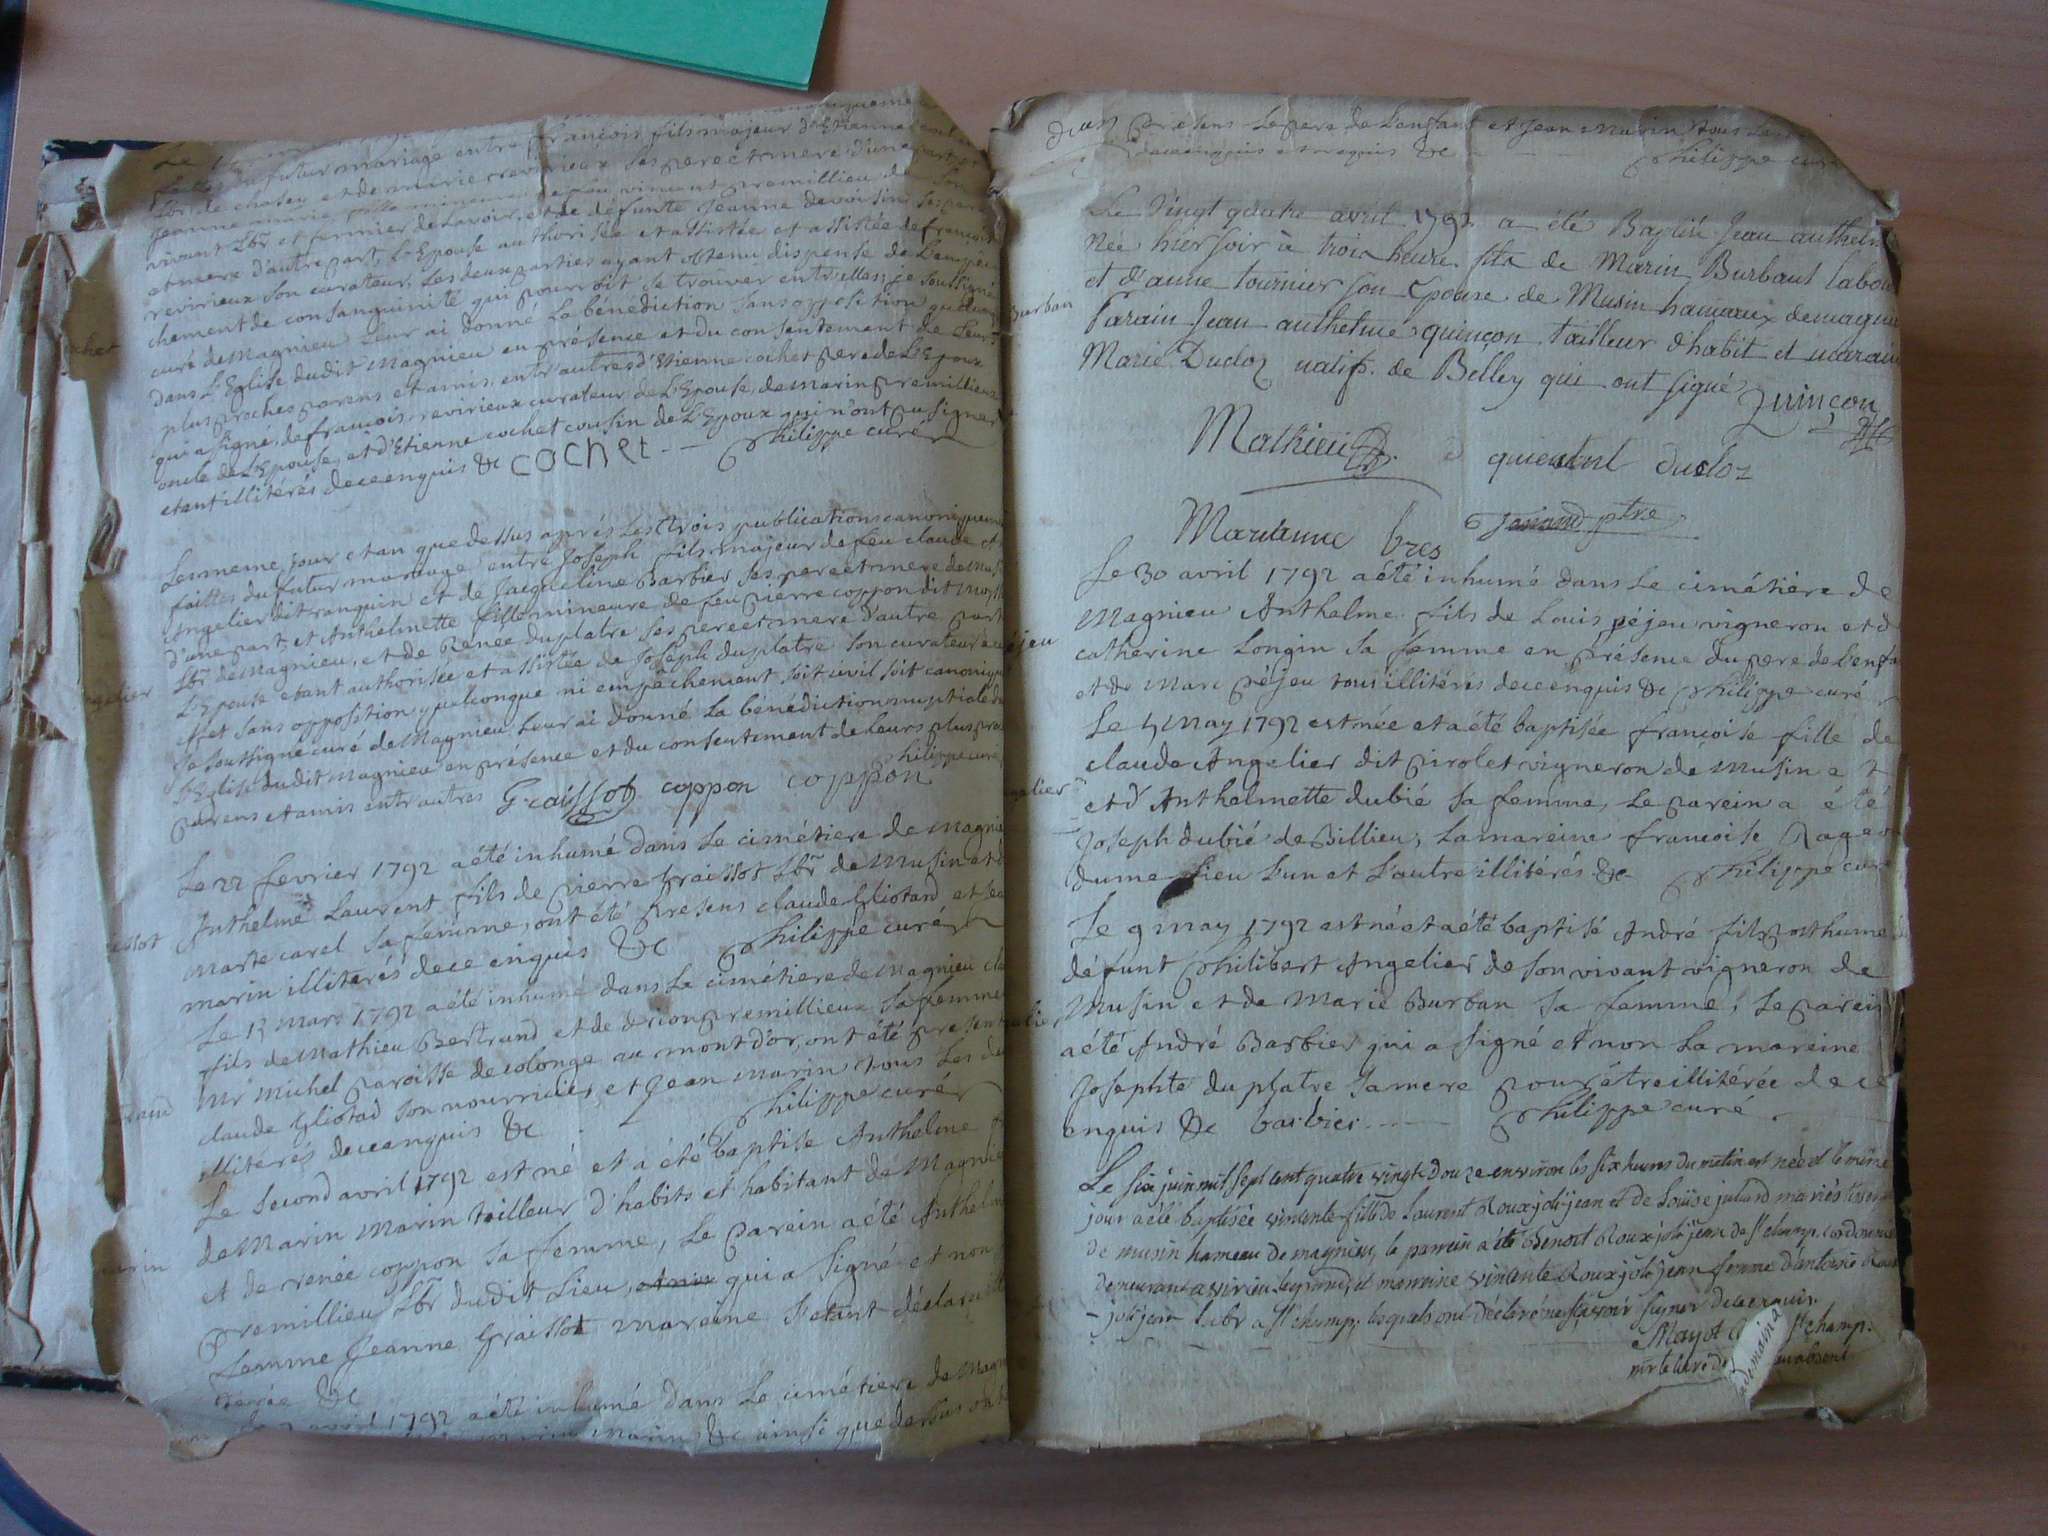 françois fils majeur d'Etienne
futur mariage entre
Lbr de chasey et de marie revirieux ses pere et mere d'une part, et
Jeanne marie fille mineure de feu vincent premillieu de son
vivant Lbr et fermier de Lavoir, et de défunte Jeanne devoisin ses pere
et mere d'autre part, L'Epouse authorisée et assistée et assistée de françois
revirieux son curateur, Les deux parties ayant obtenu dispense de L'empe
chement de consanguinité qui pourroit se trouver entr'elles; je soussigné
curé de Magnieu Leur ai donné La bénédiction sans opposition
dans L'Eglise dudit Magnieu en présence et du consentement de Leurs
plus proches parens et amis, entr'autres d'Etienne cochet pere de L'Epoux
qui a signé, de françois revirieux curateur de L'Epouse, de marin premillieux
oncle de L'Epouse, et d'Etienne cochet cousin de L'Epoux qui n'ont pu signer
etant illitérés de ce enquis &c cochet — Philippe curé
Les meme jour et an que dessus après Les trois publications canoniquement
faittes du futur mariage entre Joseph fils majeur de feu claude
Angelier dit ranguin et de Jacqueline Barbier ses pere et mere de
d'une part, et Anthelmette fille mineure de feu pierre coppon dit
Lbr de Magnieu, et de Renée duplatre ses pere et mere d'autre part
L'Epouse etant authorisée et assistée de Joseph duplatre son curateur
et sans opposition quelconque ni empêchement soit civil soit canonique
Je soussigné curé de Magnieu Leur ai donné La bénédiction nuptiale
L'Eglise dudit Magnieu en présence et du consentement de Leurs plus
parens et amis entr'autres Graissot coppon coppon Philippe curé
Le 22 fevrier 1792 a été inhumé dans Le cimétiere de Magnieu
Anthelme Laurent fils de pierre Graissot Lbr de Musin et
Marte carel sa femme, ont été presens claude Gliotard et
marin illiterés de ce enquis &c Philippe curé
Le 13 Mars 1792 a été inhumé dans Le cimétiere de Magnieu
fils de Mathieu Bertrand et de premillieux sa femme
Mr Michel paroisse de colonge au mont d'or, ont été presens
claude Gliotad son nourricier, et Jean Marin tous Les
illitérés de ce enquis &c Philippe curé
Le second avril 1792 est né et a été baptisé Anthelme
de Marin Marin tailleur d'habits et habitant de Magnieu
et de renée coppon sa femme, Le parein a été Anthelme
premillieu Lbr dudit Lieu, qui a signé et non
Lemme Jeanne Graissot mareine s'etant déclarée
&c
avril 1792 a été inhumé dans Le cimétiere de
Marin &c ainsi que dessus
presens Le pere de L'enfant et Jean Marin tous
de ce enquis et requis &c Philippe curé
Le Vingt quatre avril 1792 a été Baptisé Jean anthelme
Née hier soir à trois heure fils de Marin Burbant
Burban
et d'anne tournier son Epouse de Musin hameaux de
Parain Jean anthelme quinçon tailleur d'habit et maraine
Marie Ducloz natif de Belley qui ont signé Quinçon
Mathieu quientul ducloz
Marianne bres ptre
Le 30 avril 1792 a été inhumé dans Le cimétière de
Magnieu Anthelme fils de Louis péjeu vigneron et de
catherine Longin sa femme en présence du pere de L'enfant
et de Marc péjeu tous illitérés de ce enquis &c Philippe curé
Le 4 May 1792 est née et a été baptisée françoise fille de
claude Angelier dit pirolet vigneron de Musin et
et d'Anthelmette dubié sa femme, Le parein a été
Joseph dubié de Billieu, La mareine francoise
du me Lieu L'un et L'autre illitérés &c Philippe curé
Le 9 may 1792 est né et a été baptisé André fils posthume
défunt Philibert Angelier de son vivant vigneron de
Musin et de Marie Burban sa femme, Le parein
a été André Barbier qui a signé et non La mareine
Josephte duplatre sa mere pour être illitérée de ce
enquis &c barbier — Philippe curé
Le six juin mil sept cent quatre vingt douze environ les six heures du matin est née et le même
jour a été baptisée vincente fille de laurent Roux joli jean et de Louise juliand mariés
de musin hameau de magnieu, le parrein a été Benoit Roux joli jean de st champ cordonnier
demeurant a virieu le grand, et marreine vincente Roux joli jean femme d'antoine Roux
joli jean Labr a st champ, lesquels ont déclaré ne sçavoir signer de ce enquis.
Mayot st champ.
absent